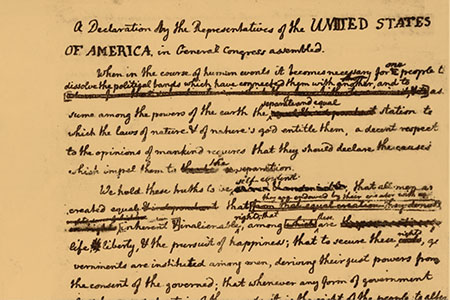 A Declaration by the Representatives of the UNITED STATES
OF AMERICA, in General Congress assembled.
When in the course of human events it becomes necessary for one people to
dissolve the political bands which have connected them with another, and to
as
sume among the powers of the earth the separate and equal station to
which the laws of nature & of nature's god entitle them, a decent respect
to the opinions of mankind requires that they should declare the causes
which impel them to the separation.
We hold these truths to be self-evident, that all men are
created equal & independent that they are endowed by their creator with
from that equal creation they derive
rights, that these
inherent & inalienable, among which are
life, & liberty, & the pursuit of happiness; that to secure these rights, go
vernments are instituted among men, deriving their just powers from
the consent of the governed; that whenever any form of government
it is the right of the people to alter